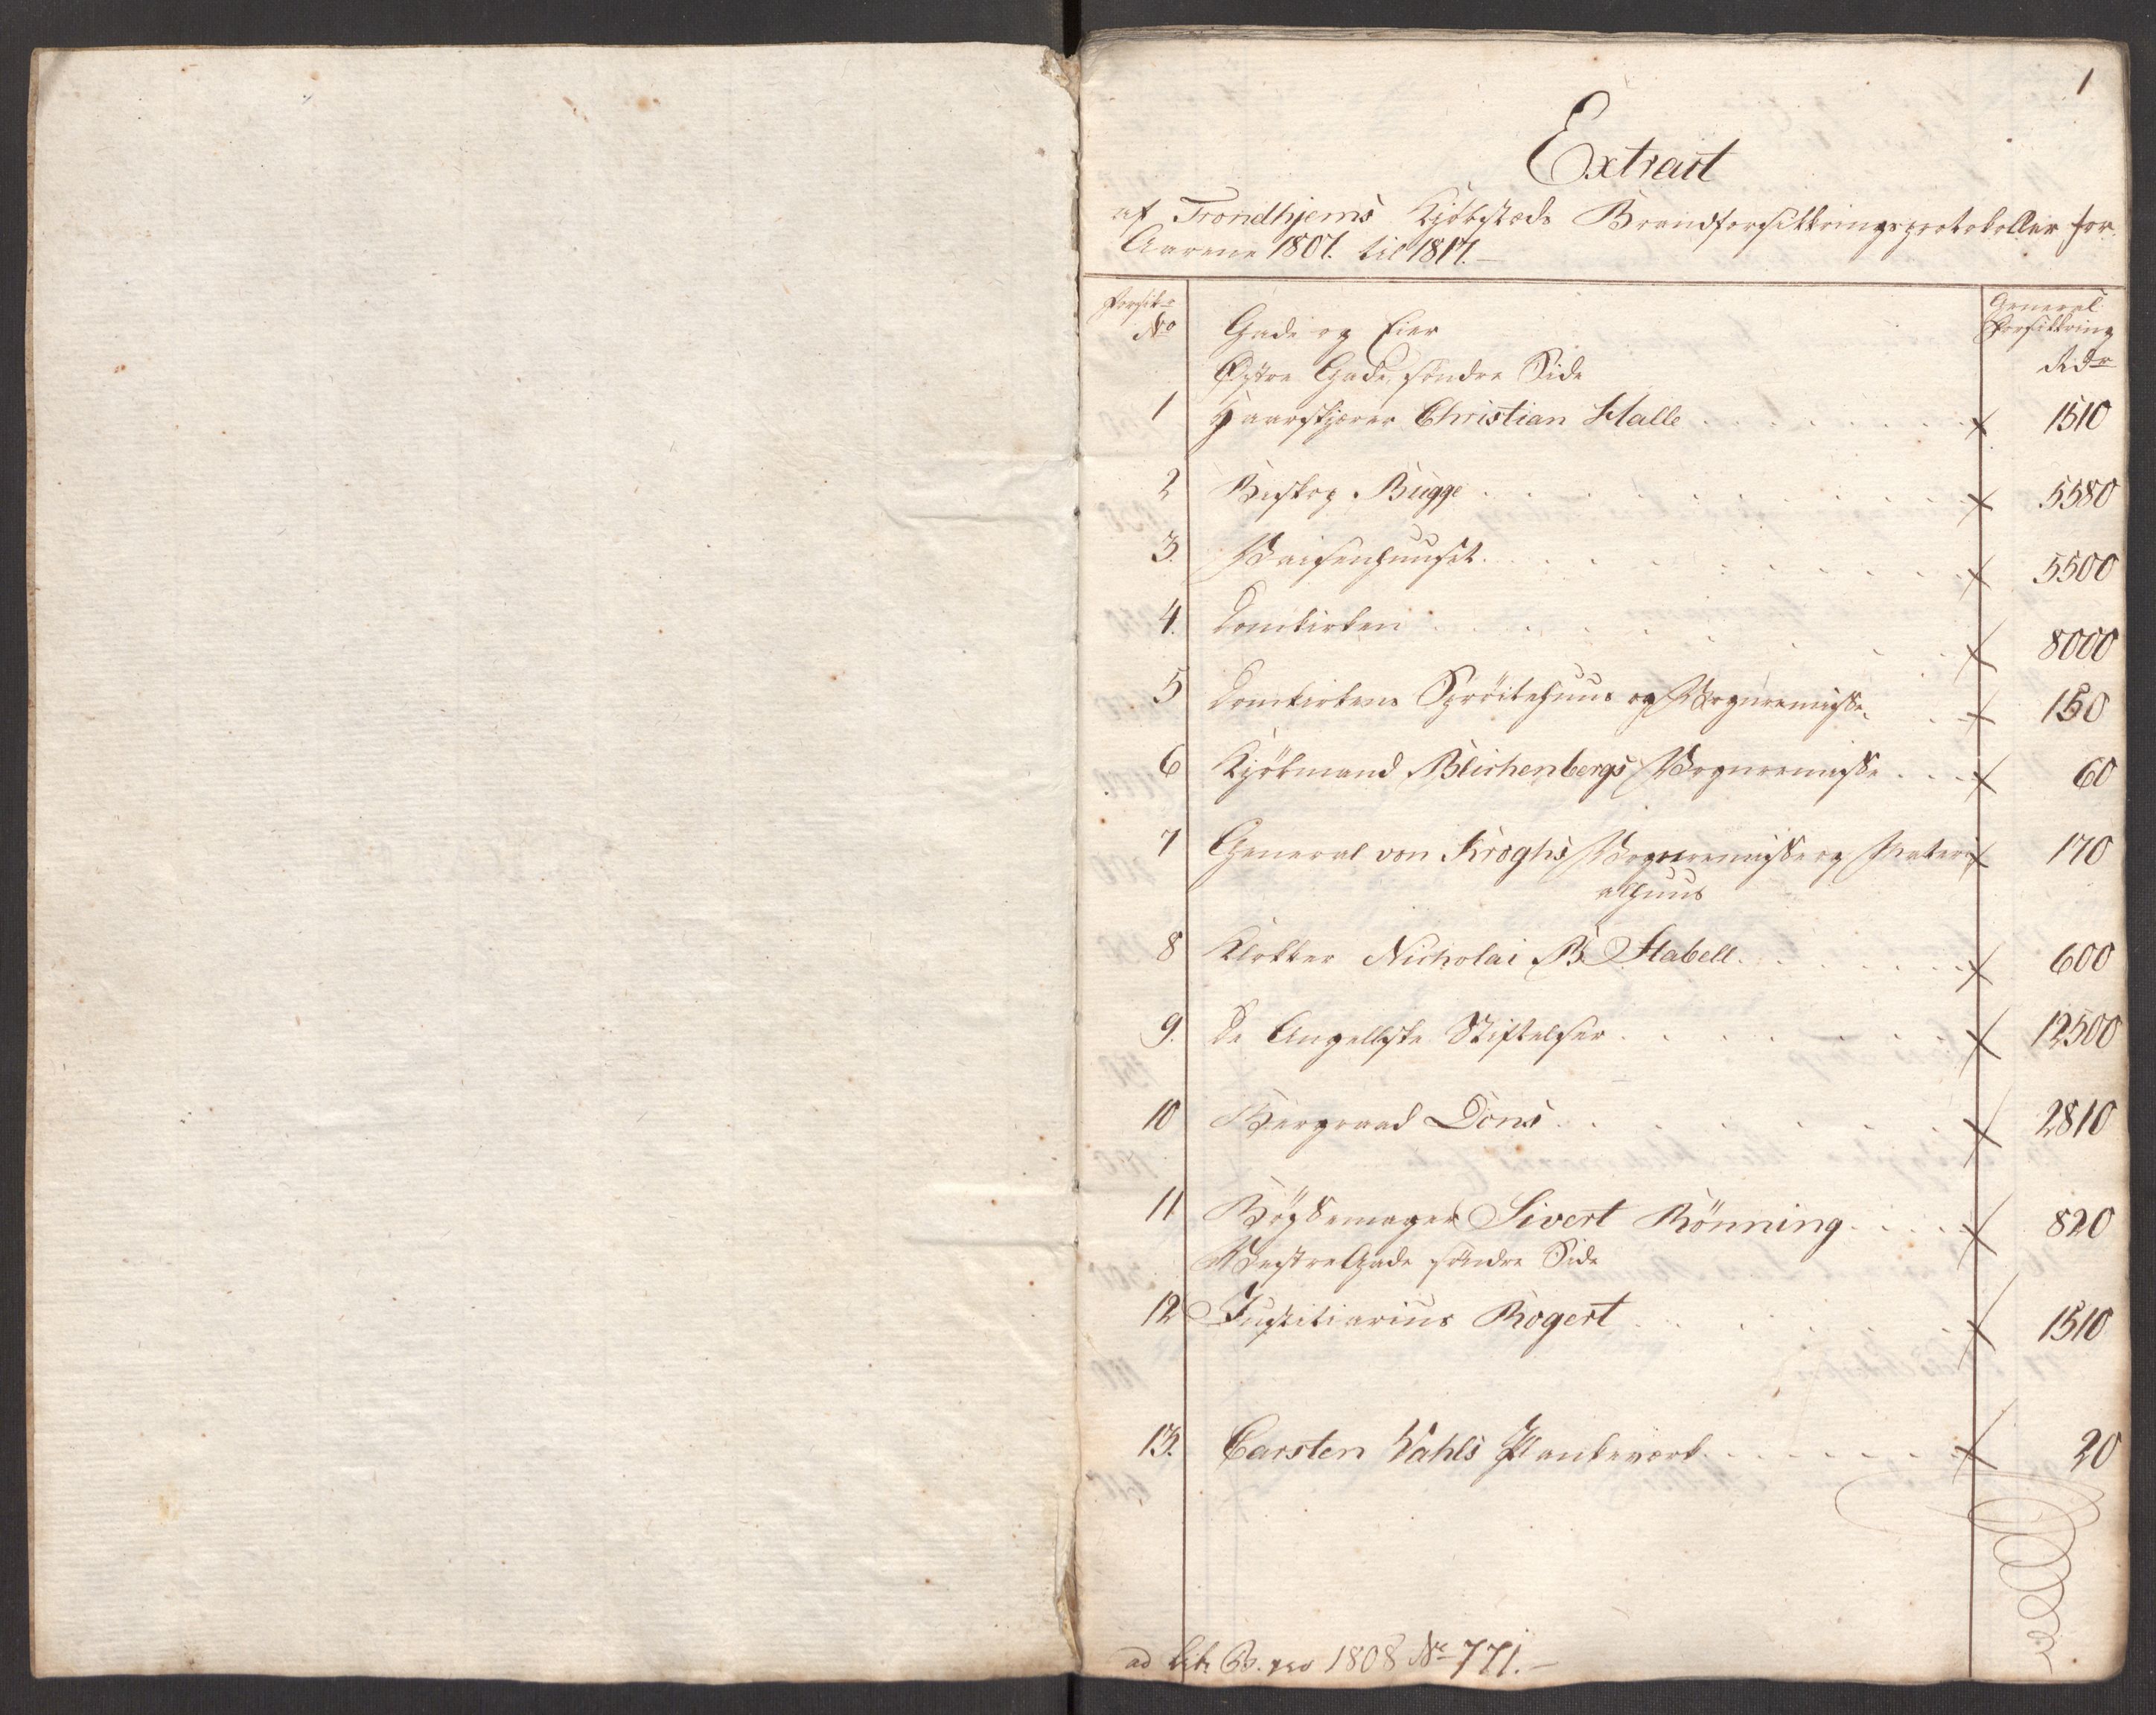 1
Extract
af Trondhjems Kjöbstæds Brandforsikkringsprotokoller for
Aarene 1807. til 1817.
Forsik:
No
Gade og Eier
General
Forsikkring
Rdr
Østre Gade, söndre Side
1 Haarskjærer Christian Halle 1510
2 Biskop Bugge 5580
3. Waisenhuuset 5500
4. Domkirken 8000
5 Domkirkens Spröitehuus og Wognremisse 150
6 Kjöbmand Blichenbergs Wognremisse 60
7 General von Kroghs Wognremisse og Materi 170
alhuus
8 Klokker Nicholai B. Stabell 600
9. De Angellske Stiftelser 12500
10 Bergraad Dons 2810
11 Bögsemager Sivert Rönning 820
Westre Gade söndre Side
12 Justitiarius Rogert 1510
13. Carsten Wahls Plankeværk 20
ad Litr. B. pro 1808 No 771.